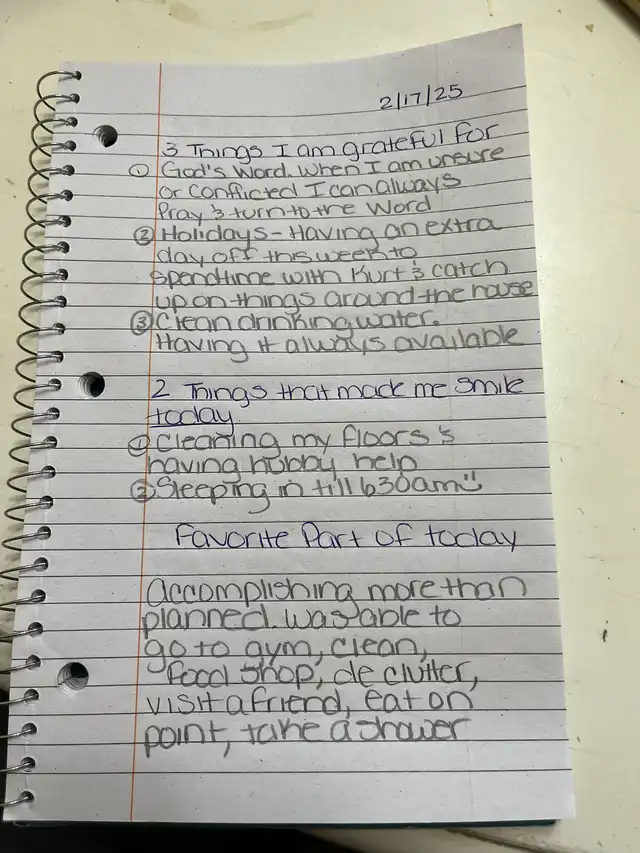 2/17/25
3 Things I am grateful for
① God's Word. When I am unsure
or conflicted I can always
Pray & turn to the Word
② Holidays - Having an extra
day off this week to
spend time with Kurt & catch
up on things around the house
③ Clean drinking water.
Having it always available
2 Things that made me smile
today
① Cleaning my floors &
having hubby help
② Sleeping in till 630am :)
Favorite Part of today
Accomplishing more than
planned. Was able to
go to gym, clean,
food shop, de clutter,
visit a friend, eat on
point, take a shower